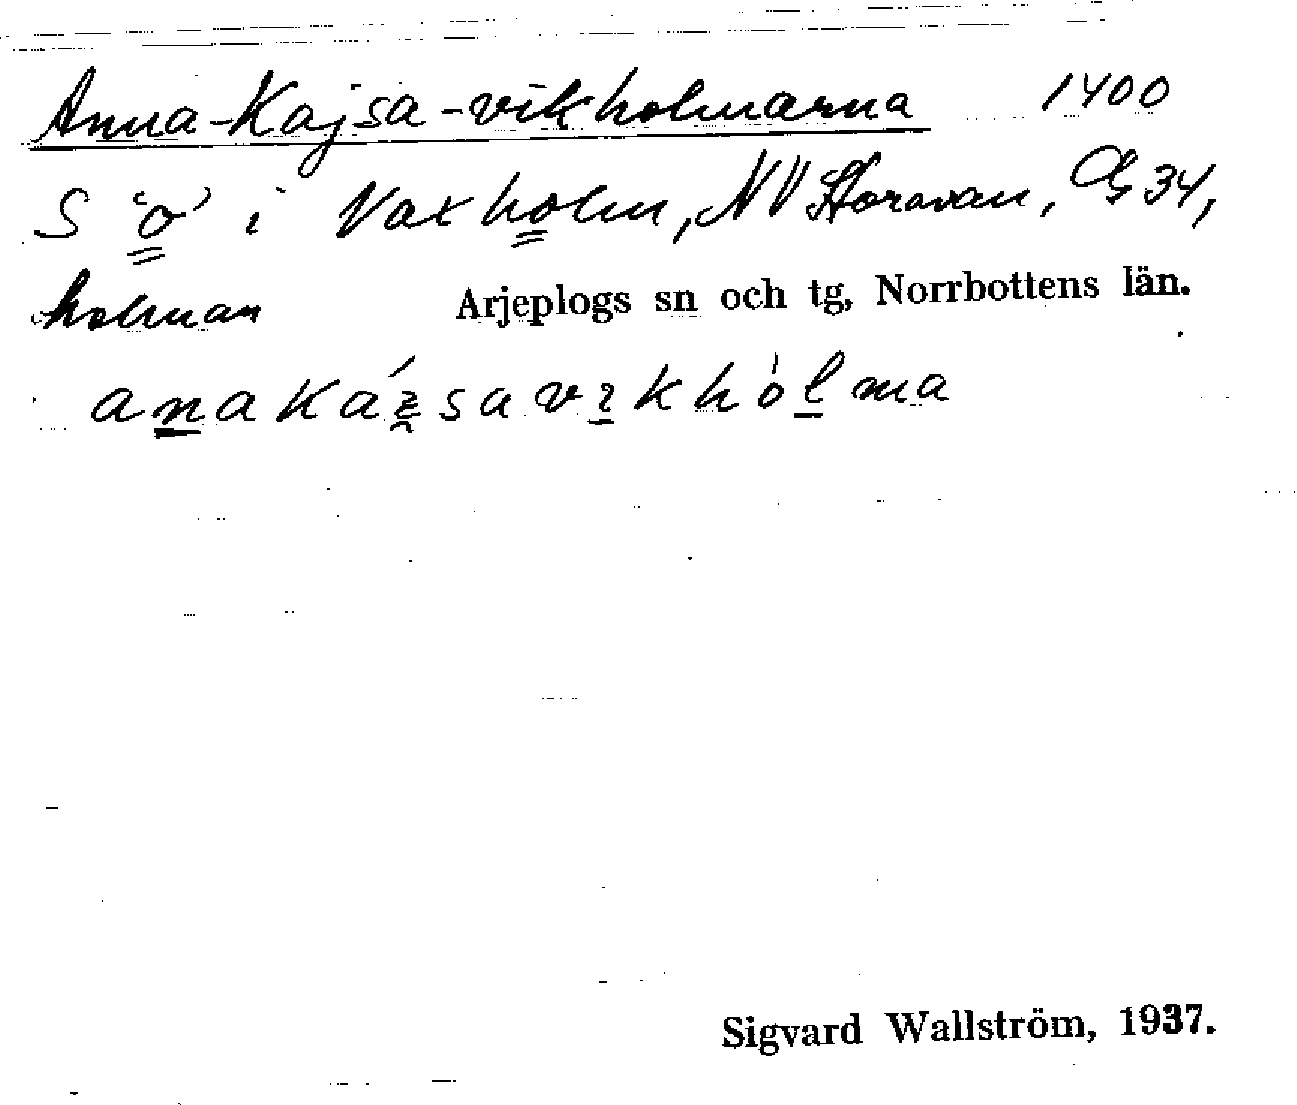 Anna-Kajsa-vikholmarna 1400
S 'o' i Vaxholm, NV Storavan, G 34,
holmar Arjeplogs sn och tg, Norrbottens län.
anakáɪsavɪkhólma
Sigvard Wallström, 1937.